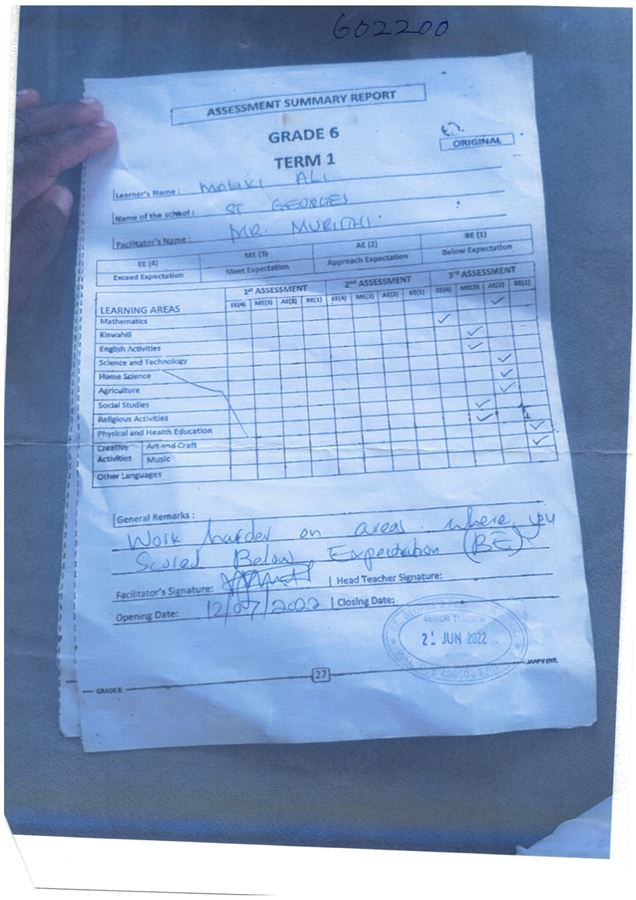 602200
ASSESSMENT SUMMARY REPORT
GRADE 6
TERM 1
ORIGINAL
Learner's Name : MALIKI ALI
Name of the school : ST GEORGES
Facilitator's Name : MR. MURITHI
EE (4) ME (3) AE (2) BE (1)
Exceed Expectation Meet Expectation Approach Expectation Below Expectation
1ST ASSESSMENT 2ND ASSESSMENT 3RD ASSESSMENT
LEARNING AREAS EE(4) ME(3) AE(2) BE(1) EE(4) ME(3) AE(2) BE(1) EE(4) ME(3) AE(2) BE(1)
Mathematics ✓
Kiswahili ✓
English Activities ✓
Science and Technology ✓
Home Science ✓
Agriculture ✓
Social Studies ✓
Religious Activities ✓
Physical and Health Education ✓
Creative Activities Art and Craft ✓
Music ✓
Other Languages
General Remarks :
Work harder on areas where you
Scored Below Expectation (BE)
Facilitator's Signature: Head Teacher Signature:
Opening Date: 12/07/2022 Closing Date:
SENIOR TEACHER
2 JUN 2022
27
GRADE 6